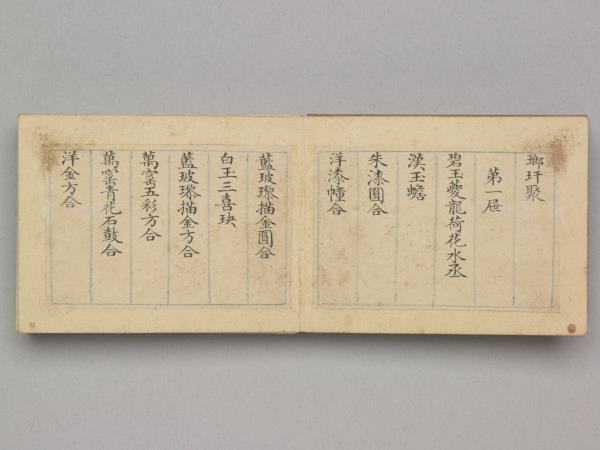 瑯玕聚
第一屉
碧玉夔龍荷花水丞
漢玉蟾
朱漆圓合
洋漆幢合
藍玻瓈描金圓合
白玉三喜玦
藍玻瓈描金方合
萬窰五彩方合
萬窰青花石鼓合
洋金方合